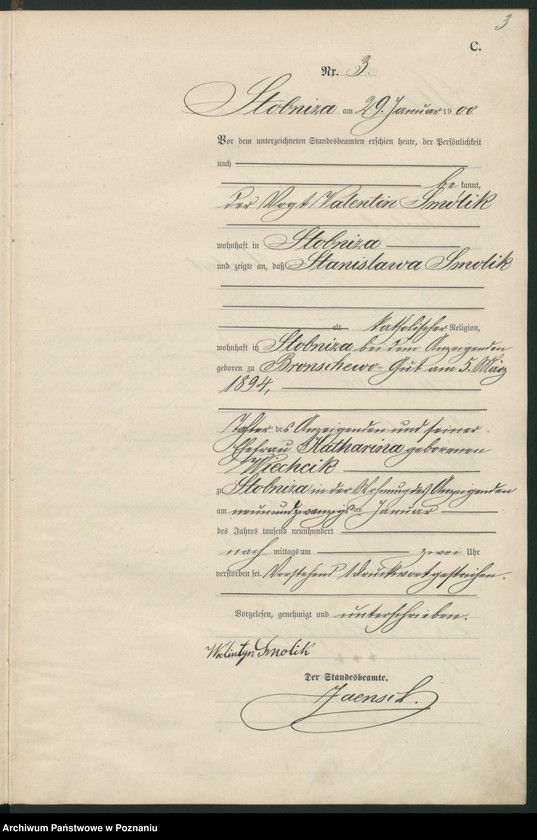 3
C.
Nr. 3.
Stobniza am 29. Januar 1900
Vor dem unterzeichneten Standesbeamten erschien heute, der Persönlichkeit
nach
be kannt,
der Vogt Valentin Smolik
wohnhaft in Stobniza
und zeigte an, daß Stanislawa Smolik
alt katholischer Religion,
wohnhaft in Stobniza bei dem Anzeigenden
geboren zu Bronschewo-Gut am 5. März
1894,
Tochter des Anzeigenden und seiner
Ehefrau Katharina geborenen
Wiechcik
zu Stobniza in der Wohnung des Anzeigenden
am neunundzwanzigsten Januar
des Jahres tausend neunhundert
nach mittags um zwei Uhr
verstorben sei. Vorstehend 1 Druckwort gestrichen.
Vorgelesen, genehmigt und unterschrieben.
Walintyn Smolik
Der Standesbeamte.
Jaensch.
Archiwum Państwowe w Poznaniu